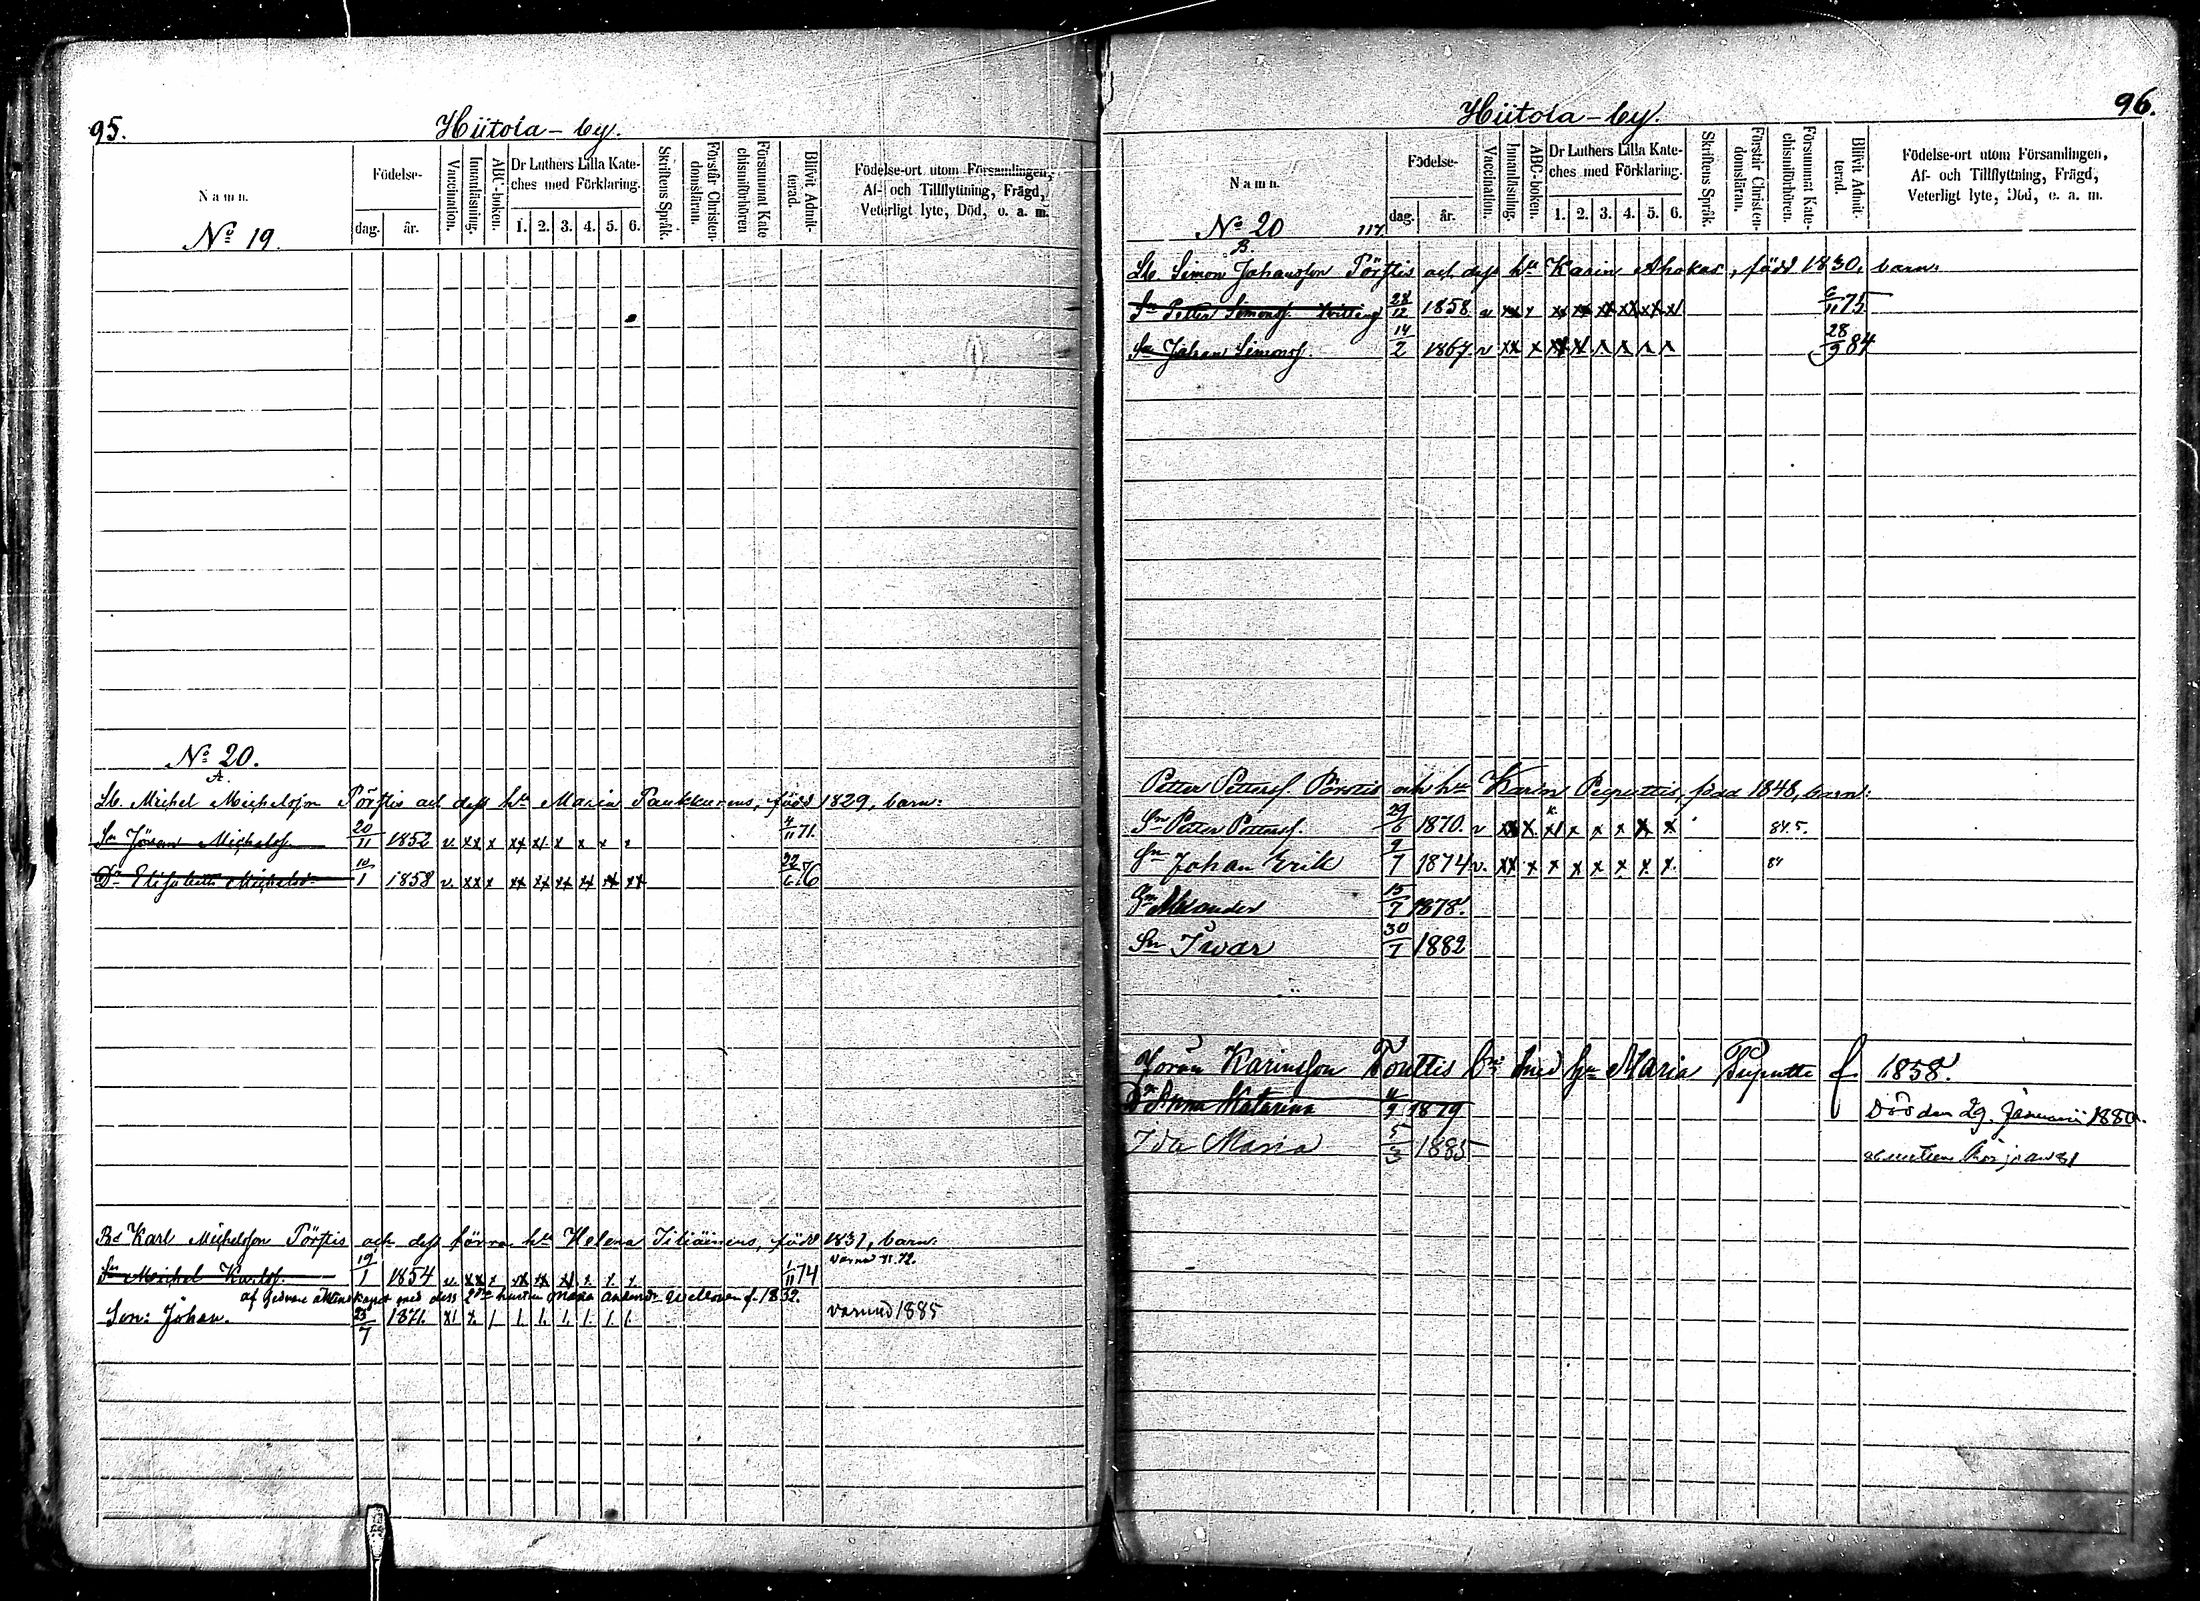 95.
Hiitola-by.
Namn.
Födelse-
dag. år.
Vaccination.
Innanläsning.
ABC-boken.
Dr Luthers Lilla Kate-
ches med Förklaring.
1. 2. 3. 4. 5. 6.
Skriftens Språk.
Förstår Christen-
domsläran.
Försummat Kate
chismiförhören
Blifvit Admit-
terad.
Födelse-ort utom Församlingen,
Af- och Tillflyttning, Frägd,
Veterligt lyte, Död, o. a. m.
No 19.
No 20.
A.
Lb. Michel Michelsson Pörstis och dess hu Maria Paukkunens, född 1829, barn:
Sn Jöran Michelss. 20/11 1852 v. xx x xx x1 x x x x 4/11 71.
Dr Elisabeth Michelsdr 10/1 1858 v. xx x xx xx xx xx xx xx 22/6 76
Bd Karl Michelsson Pörstis och dess förra hu Helena , född 1831, barn:
Sn Michel Karlss. 19/1 1854 v. xx x xx xx x1 x. x. x. 1/11 74
af sednare äktenskapet med dess 2dra hustru f. 1832.
Son: Johan. 25/7 1871. x1 x. 1 1. 1. 1. 1. 1. 1. 1885
96.
Hiitola-by.
Namn.
Födelse-
dag. år.
Vaccination.
Innanläsning.
ABC-boken.
Dr Luthers Lilla Kate-
ches med Förklaring.
1. 2. 3. 4. 5. 6.
Skriftens Språk.
Förstår Christen-
domsläran.
Försummat Kate-
chismiförhören.
Blifvit Admit-
terad.
Födelse-ort utom Församlingen,
Af- och Tillflyttning, Frägd,
Veterligt lyte, Död, o. a. m.
No 20 117.
B.
Lb. Simon Johansson Pörstis och dess hu Karin Ahokas, född 1830, barn:
Sn Petter Simonss. 28/12 1858 v xx x xx xx xx xx xx x1 6/11 75
Sn Johan Simonss. 14/2 1867. v xx x xx x1 x x x x 28/9 84
Petter Petterss. Pörstis och hu Karin Peiputtis, född 1848, barn:
Sn Petter Petterss. 29/6 1870. v xx x x1 x x x x x 84.5.
Sn Johan Erik 9/7 1874 v. xx x x x x x x. x. 84
Sn Alexander 15/7 1878.
Sn Iwar 30/7 1882
Jöran Karinsson med hu Maria f. 1858.
Dr Anna Katarina 4/9 1879 Död den 29. Januari 1880.
Ida Maria 5/3 1885